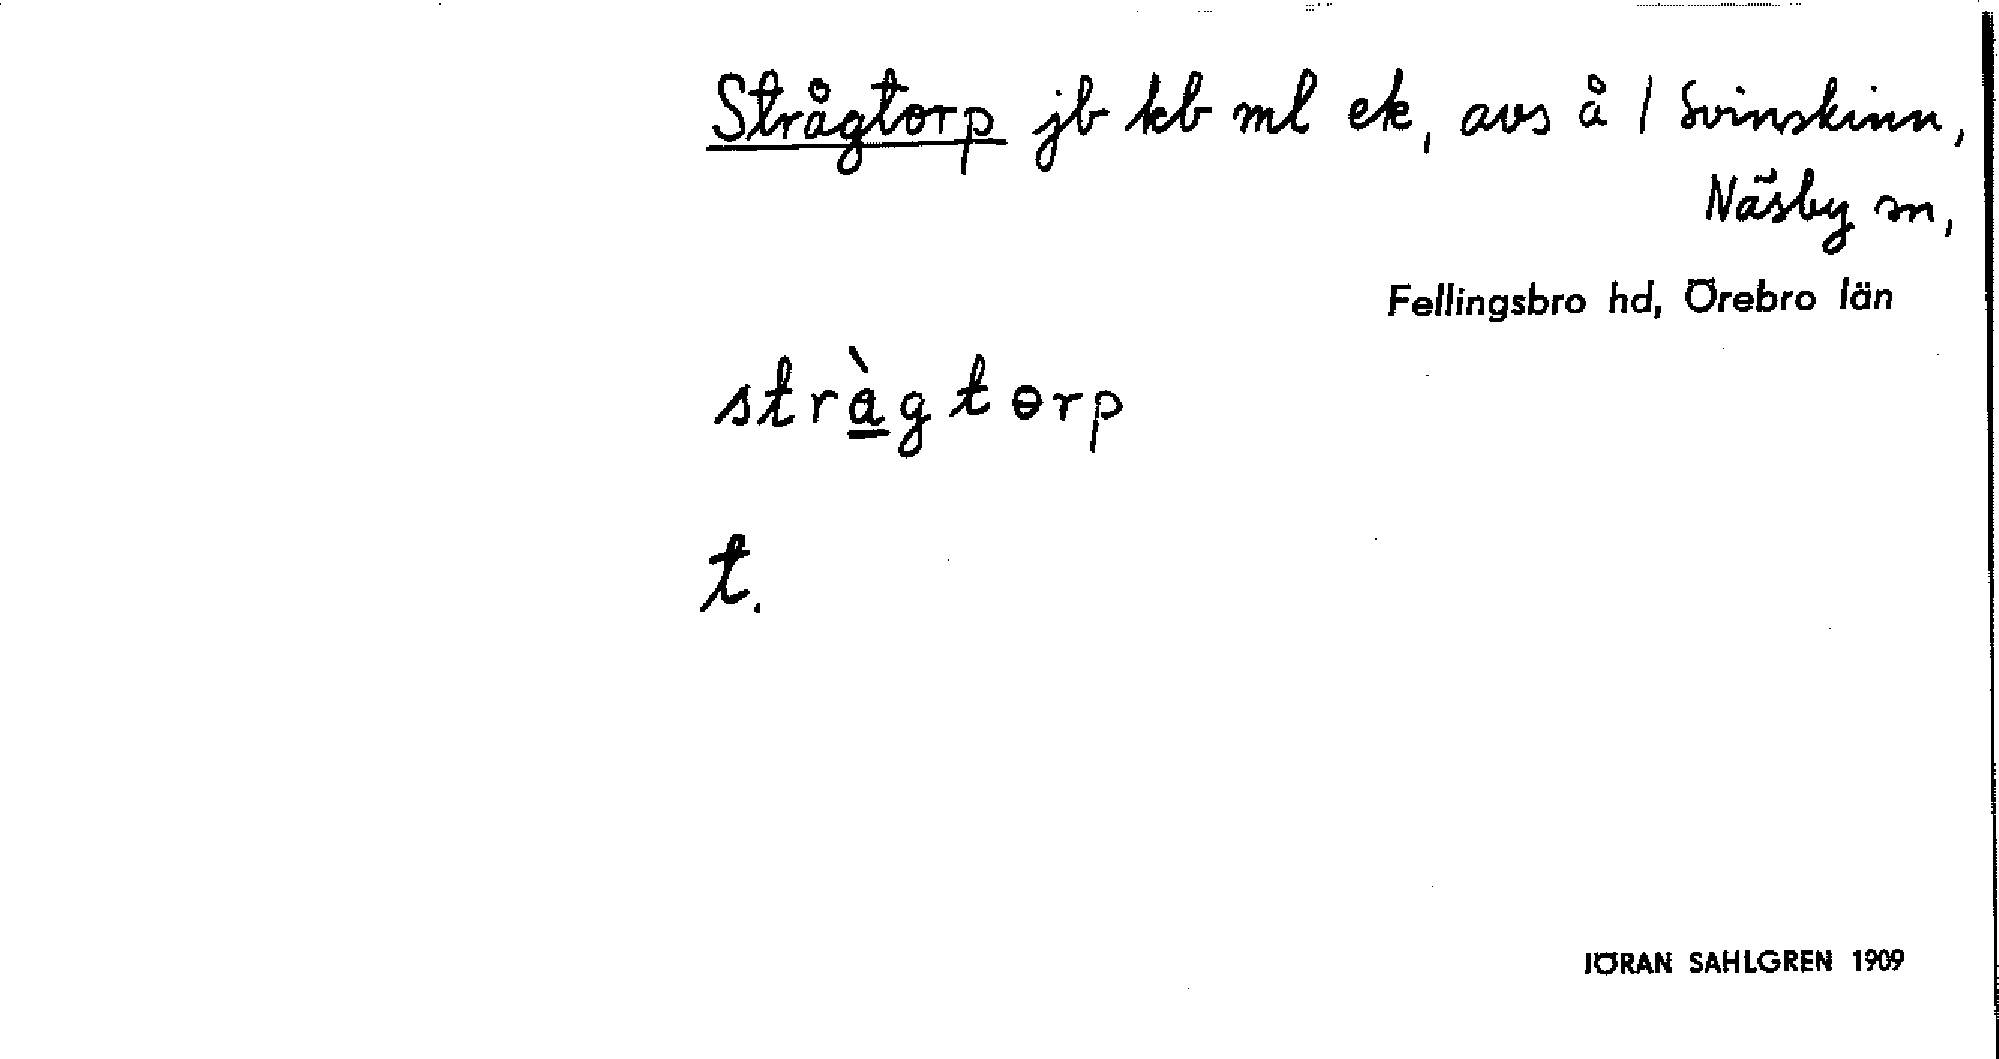 Strågtorp jb kb ml ek, avs å / Svinskinn,
Näsby sn,
Fellingsbro hd, Örebro län
stràgtɵrp
t.
JÖRAN SAHLGREN 1909